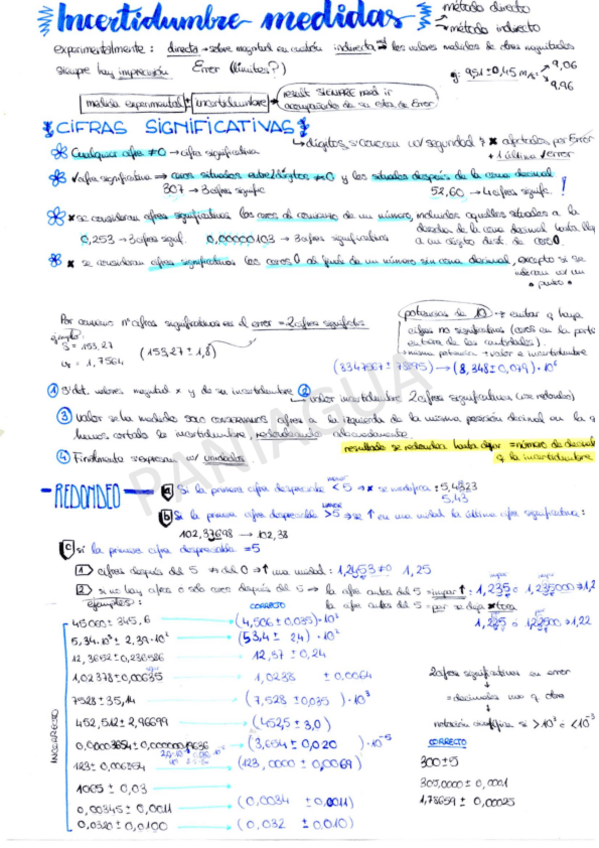 Incertidumbre medidas
método directo
método indirecto
experimentalmente: directa → sobre magnitud en cuestión indirecta → los valores medidos de otras magnitudes
siempre hay imprecisión Error (límites?)
g: 9,51 ± 0,45 m/s²
9,06
9,96
medida experimental ± incertidumbre
result SIEMPRE
acompañado de su Error
CIFRAS SIGNIFICATIVAS
dígitos se conocen c/ seguridad y x afectados por Error
+ 1 última c/ error
Cualquier cifra ≠0 → cifra significativa
✓ cifra significativa ⇒ ceros situados entre dígitos ≠0 y los situados después de la coma decimal
307 → 3 cifras signific. 52,60 → 4 cifras signific. !
x se consideran cifras significativas los ceros al comienzo de un número, incluidos aquellos situados a la
derecha de la coma decimal hasta
0,253 → 3 cifras signif. 0,00000103 → 3 cifras significativas
a un dígito dist. de cero
x se consideran cifras significativas los ceros 0 al final de un número sin coma decimal, excepto si se
indican c/ un
punto
Por convenio nº cifras significativas en el error = 2 cifras signific
ejemplo:
S = 153,27
= 1,7564
(153,27 ± 1,8)
potencias de 10 → evitar q haya
cifras no significativas (ceros en la parte
entera de las cantidades).
misma potencia → valor e incertidumbre
(8347967 ± 78795) → (8,348 ± 0,079) · 10⁶
① Se det. valores magnitud x y de su incertidumbre ②
valor incertidumbre 2 cifras significativas (se redondea)
③ valor de la medida solo conservamos cifras a la izquierda de la misma posición decimal en la q
hemos cortado la incertidumbre, redondeando adecuadamente.
resultado se redondea hasta dejar = número de decimales
q la incertidumbre
④ Finalmente se expresan c/ unidades
PANIAGUA
REDONDEO
a Si la primera cifra despreciable < 5 → x se modifica: 5,4323
5,43
b Si la primera cifra despreciable > 5 → se ↑ en una unidad la última cifra significativa:
102,37698 → 102,38
c si la primera cifra despreciable = 5
1 cifras después del 5 ≠ del 0 → ↑ una unidad: 1,2453 ≠0 1,25
2 si no hay cifra o solo ceros después del 5 → la cifra antes del 5 = impar ↑: 1,235 o 1,235000 →
la cifra antes del 5 = par se deja x toca 1,225 o 1,22500 → 1,22
ejemplos:
CORRECTO
INCORRECTO
45000 ± 345,6
(4,506 ± 0,035) · 10⁴
5,34·10³ ± 2,39·10²
(53,4 ± 2,4) · 10²
12,3652 ± 0,236586
12,37 ± 0,24
1,02378 ± 0,00635
1,0238 ± 0,0064
7528 ± 35,14
(7,528 ± 0,035) · 10³
452,512 ± 2,96699
(452,5 ± 3,0)
(3,654 ± 0,020) · 10⁻⁵
(123,0000 ± 0,0069)
1005 ± 0,03
0,00345 ± 0,0011
(0,0034 ± 0,0011)
0,0320 ± 0,0100
(0,032 ± 0,010)
2 cifras significativas en error
= decimales uno q otro
notación científica si >10³ o <10⁻³
CORRECTO
300 ± 5
305,0000 ± 0,0001
1,78659 ± 0,00025